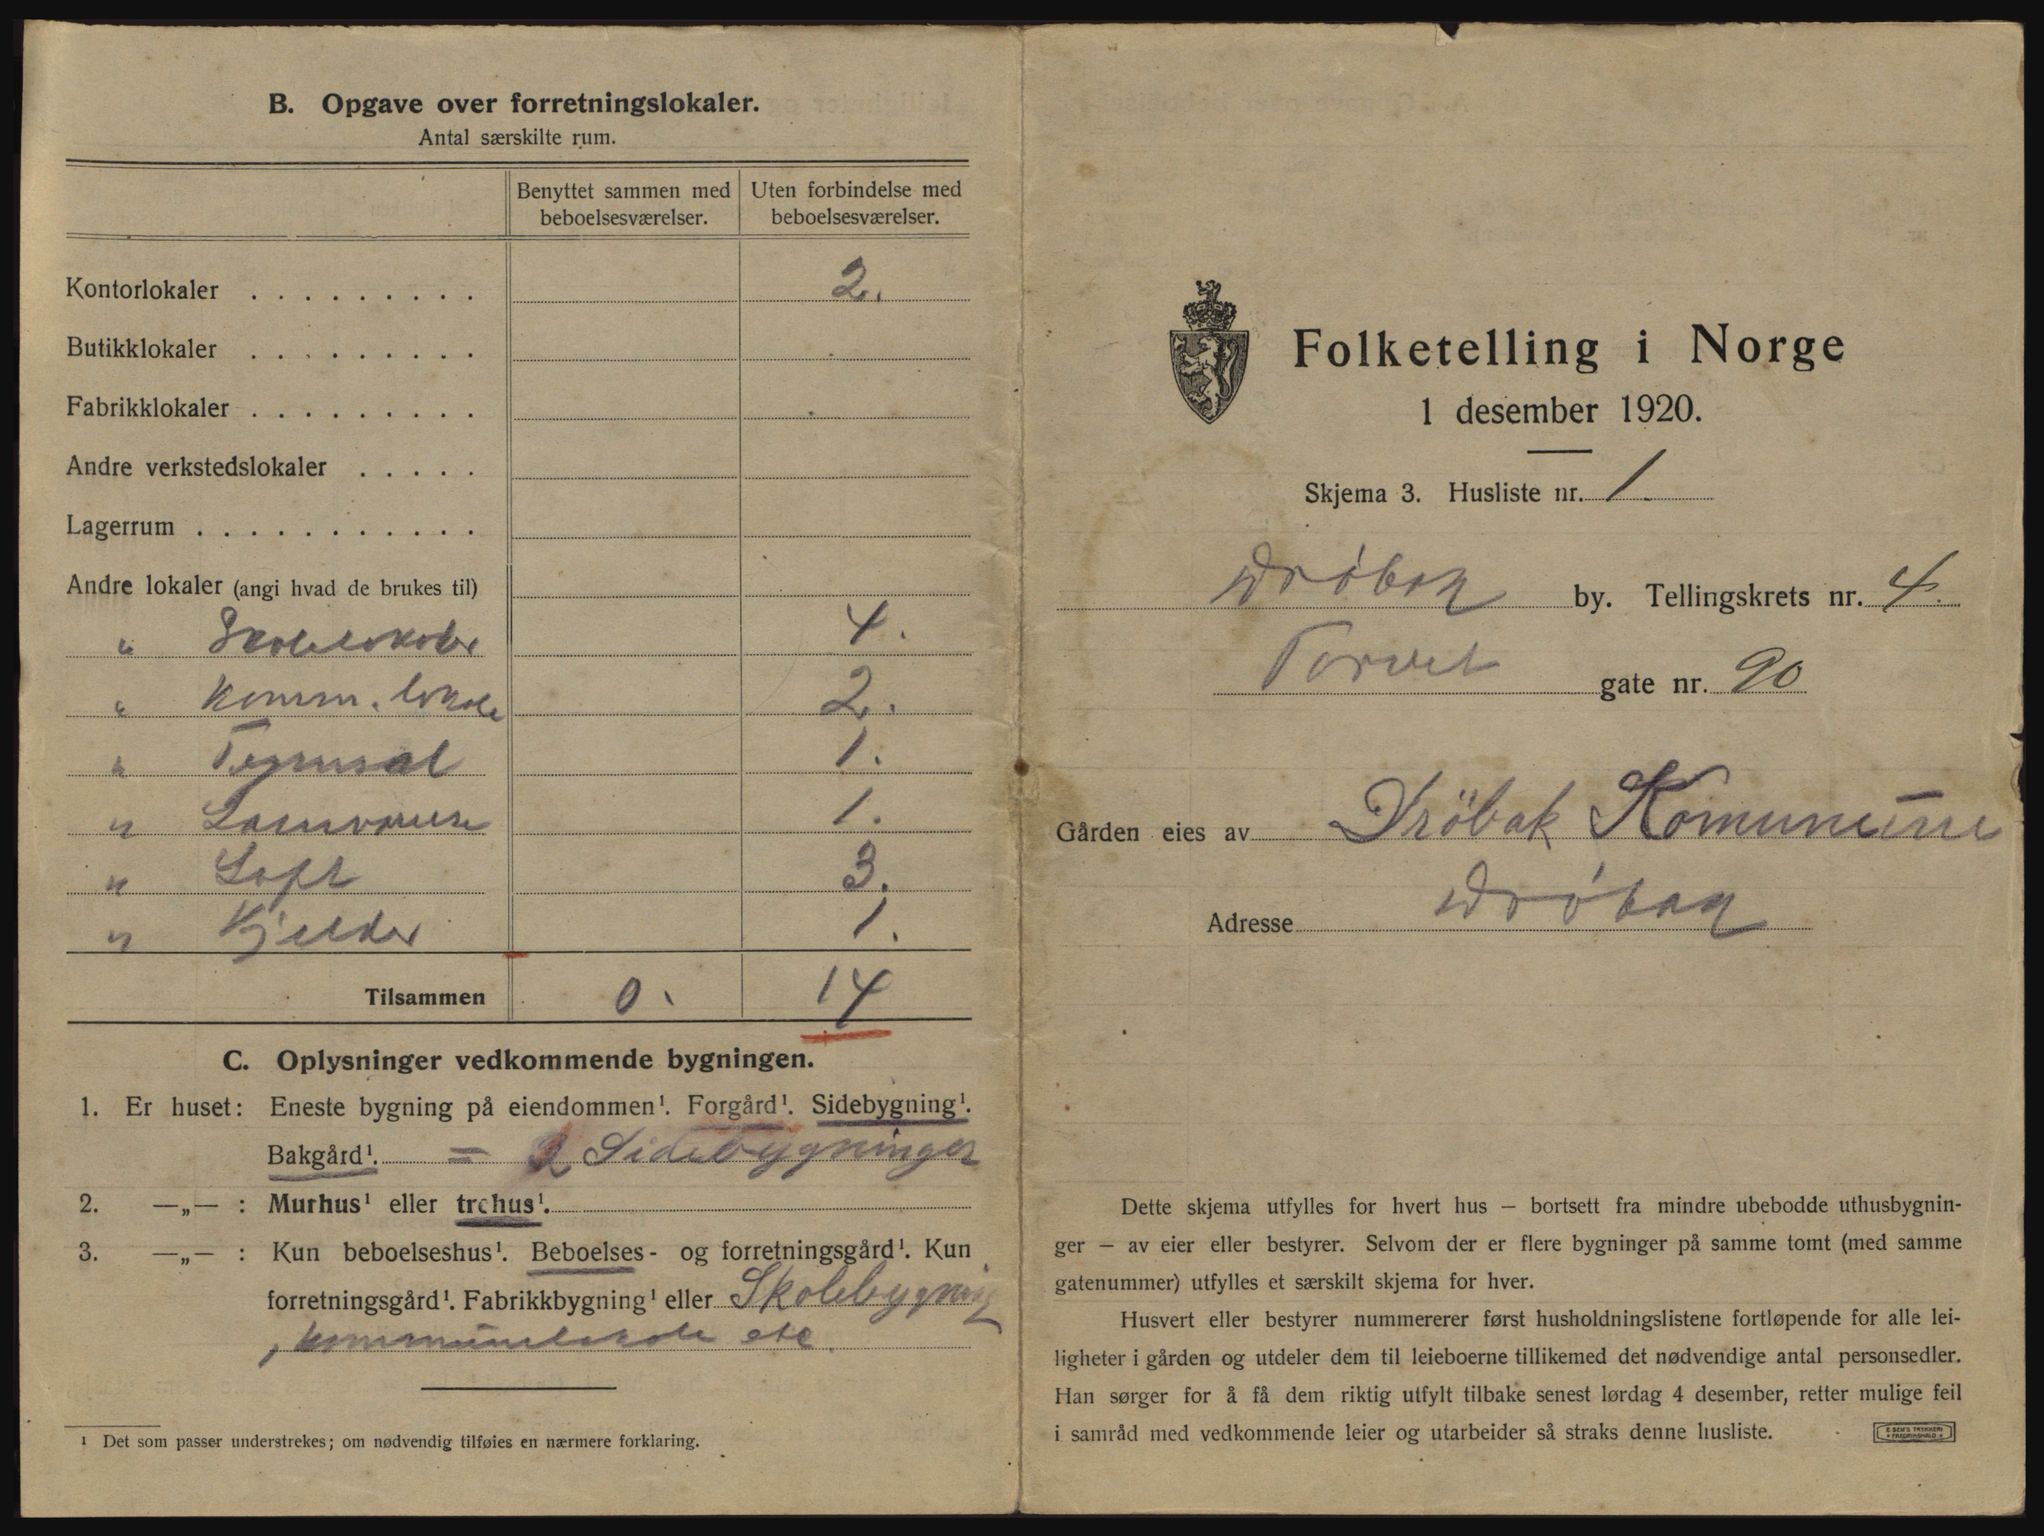 B. Opgave over forretningslokaler.
Antal særskilte rum.
Benyttet sammen med beboelsesværelser.
Uten forbindelse med beboelsesværelser.
Kontorlokaler . . . . . . . . . 2.
Butikklokaler . . . . . . . . .
Fabrikklokaler . . . . . . . . .
Andre verkstedslokaler . . . . .
Lagerrum . . . . . . . . . . .
Andre lokaler (angi hvad de brukes til)
" Skolelokaler 4.
" Komm. lokale 2.
" 1.
" 1.
" Loft 3.
" Kjelder 1.
Tilsammen 0. 14
C. Oplysninger vedkommende bygningen.
1. Er huset: Eneste bygning på eiendommen¹. Forgård¹. Sidebygning¹.
Bakgård¹. = 2 Sidebygninger
2. —„— : Murhus¹ eller trehus¹.
3. —„— : Kun beboelseshus¹. Beboelses- og forretningsgård¹. Kun
forretningsgård¹. Fabrikkbygning¹ eller Skolebygning
, kommunelokale etc.
¹ Det som passer understrekes; om nødvendig tilføies en nærmere forklaring.
Folketelling i Norge
1 desember 1920.
Skjema 3. Husliste nr. 1.
Drøbak by. Tellingskrets nr. 4.
Torvet gate nr. 90
Gården eies av Dröbak Komunene
Adresse Drøbak
Dette skjema utfylles for hvert hus – bortsett fra mindre ubebodde uthusbygnin-
ger – av eier eller bestyrer. Selvom der er flere bygninger på samme tomt (med samme
gatenummer) utfylles et særskilt skjema for hver.
Husvert eller bestyrer nummererer først husholdningslistene fortløpende for alle lei-
ligheter i gården og utdeler dem til leieboerne tillikemed det nødvendige antal personsedler.
Han sørger for å få dem riktig utfylt tilbake senest lørdag 4 desember, retter mulige feil
i samråd med vedkommende leier og utarbeider så straks denne husliste.
E SEM'S TRYKKERI
FREDRIKSHALD